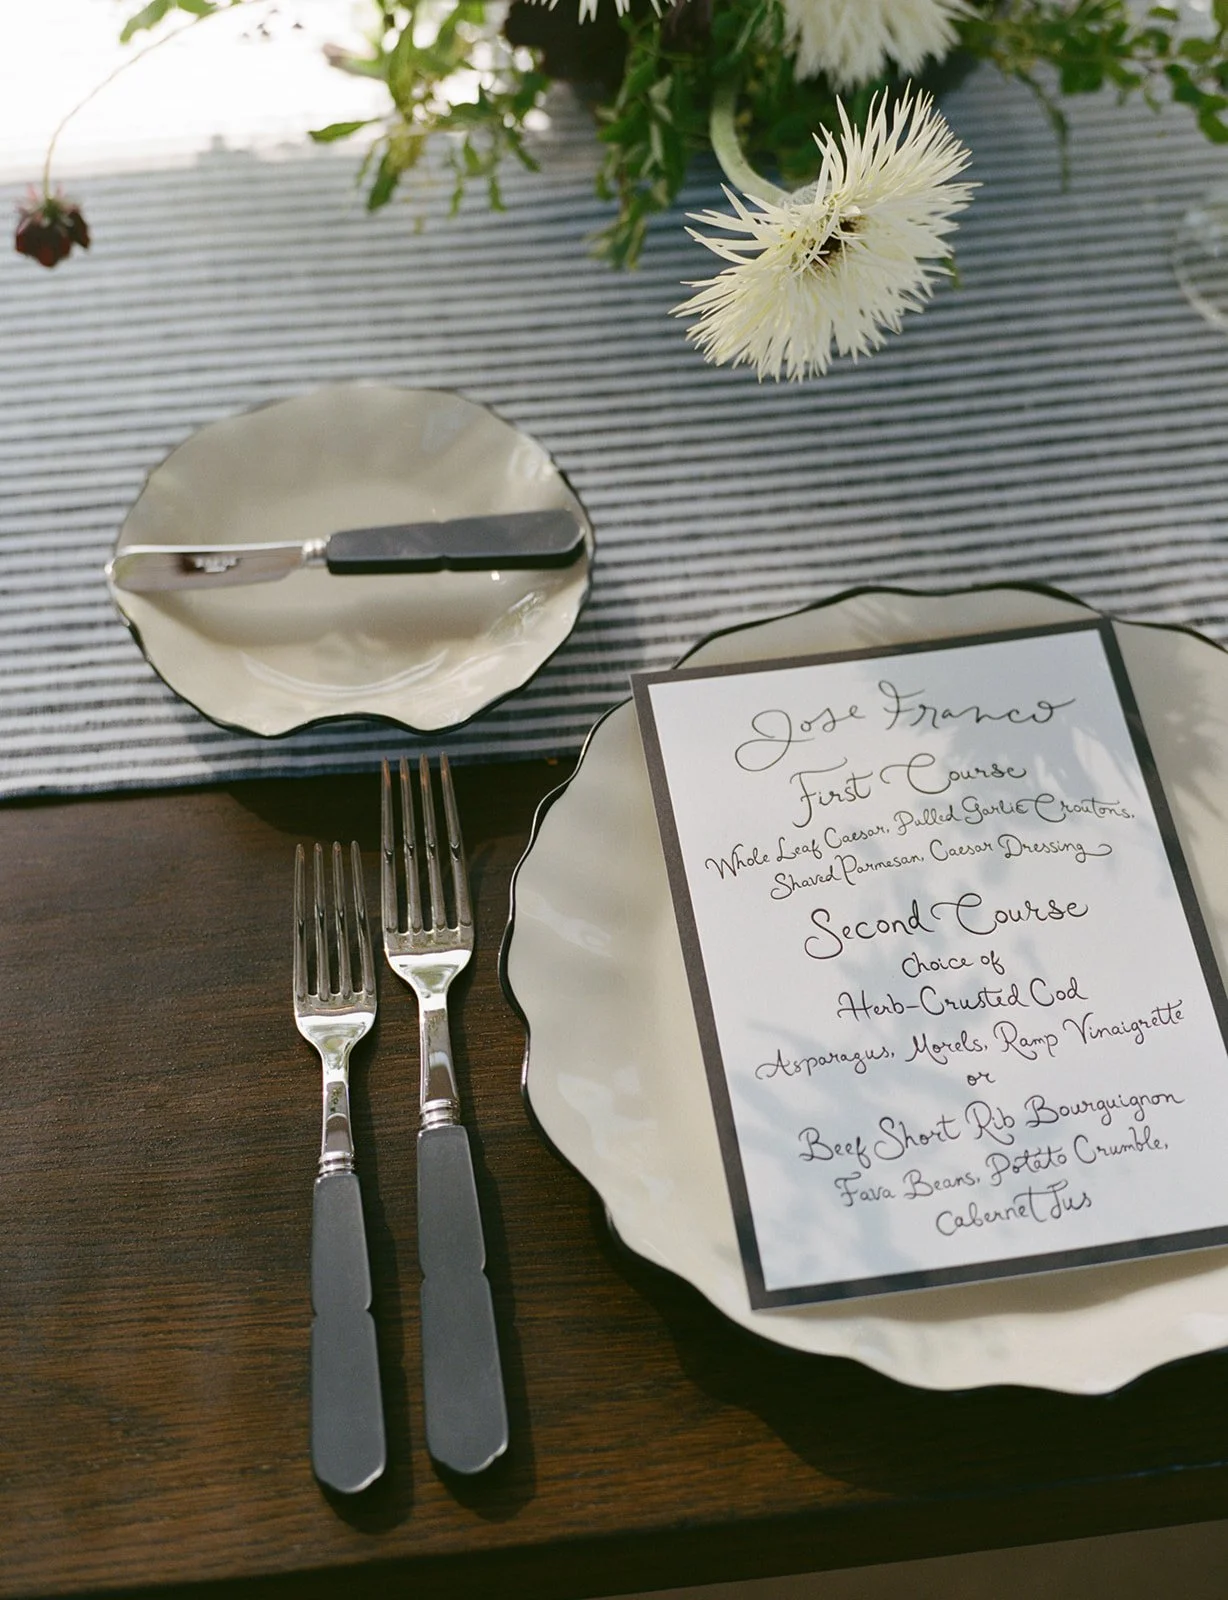 Jose Franco
First Course
Whole Leaf Caesar, Pulled Garlic Croutons,
Shaved Parmesan, Caesar Dressing
Second Course
Choice of
Herb-Crusted Cod
Asparagus, Morels, Ramp Vinaigrette
or
Beef Short Rib Bourguignon
Fava Beans, Potato Crumble,
Cabernet Jus